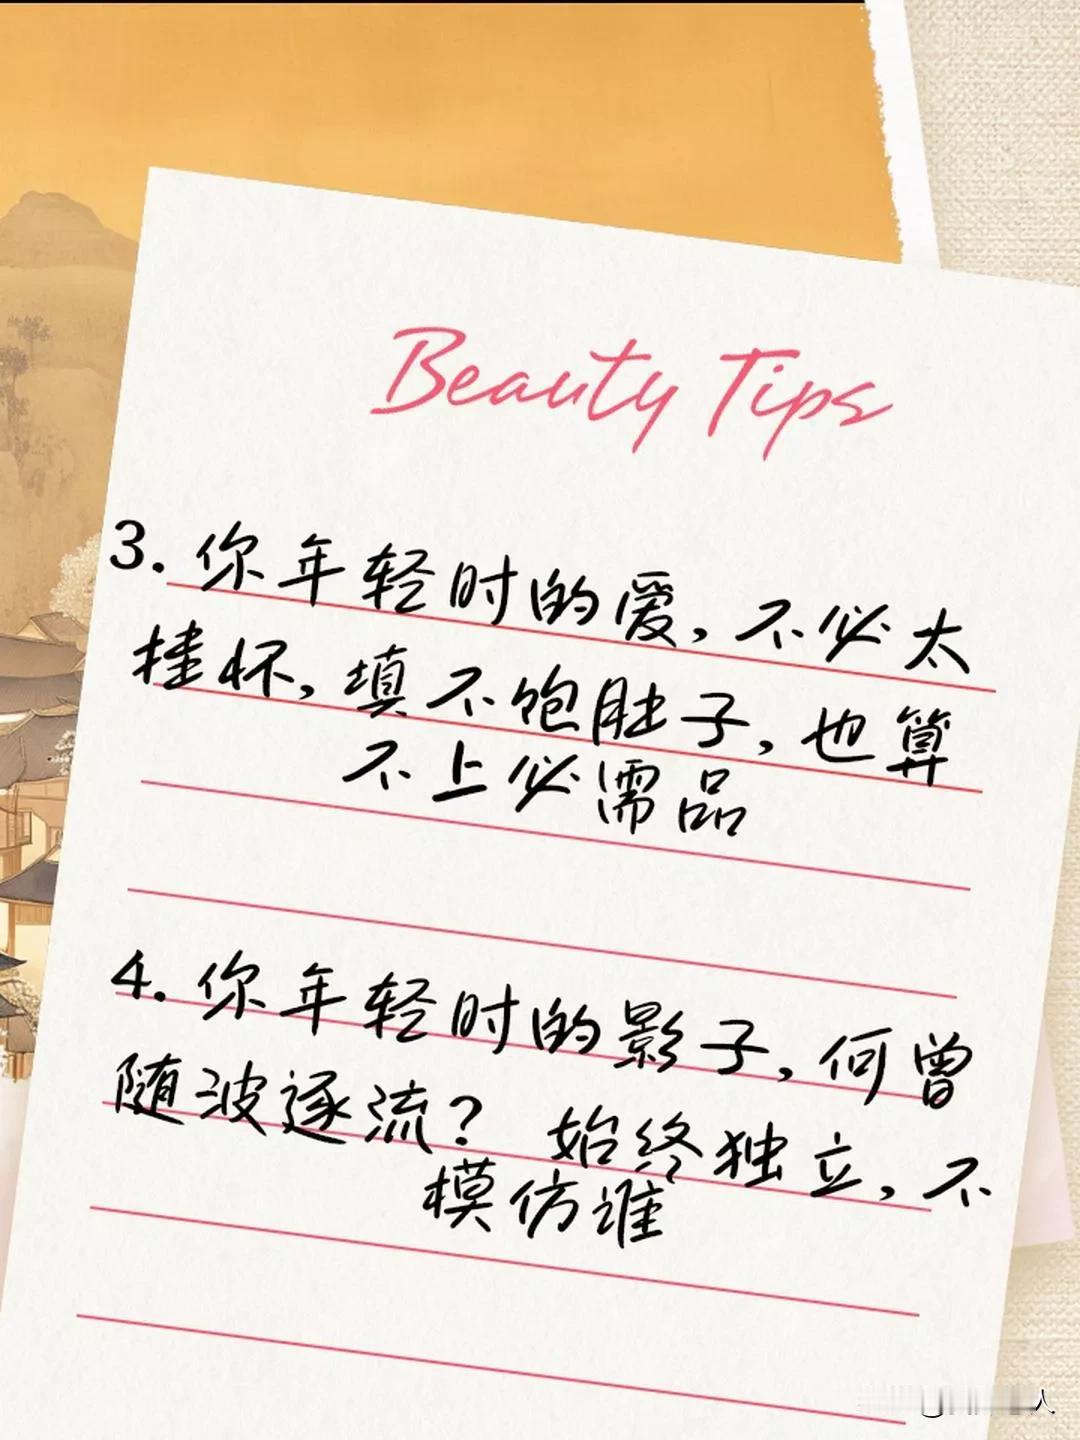 Beauty Tips
3. 你年轻时的爱，不必太
挂怀，填不饱肚子，也算
不上必需品
4. 你年轻时的影子，何曾
随波逐流？始终独立，不
模仿谁